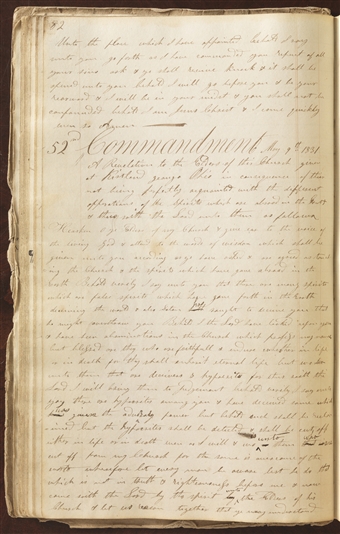 82
Unto the place which I have appointed behold I say
unto you go forth as I have commanded you repent of all
your sins ask & ye shall receive knock & it shall be
opened unto you behold I will go before you & be your
rearward & I will be in your midst & you shall not be
confounded behold I am Jesus Christ & I come quickly
even so Amen
52nd Commandment May 9th 1831
A Revelation to the Elders of this Church given
at Kirtland Geauga Ohio in consequence of their
not being perfectly acquainted with the different
opperations of the Spirits which are abroad in the Earth
& thus saith the Lord unto them as followeth
Hearken O ye Elders of my Church & give ear to the voice of
the living God & attend to the words of wisdom which shall be
given unto you according as ye have asked & are agreed as touch
ing the Church & the spirits which have gone abroad in the
earth Behold verily I say unto you that there are many spirits
which are false spirits which have gone forth in the Earth
deceiving the world & also Satan hath sought to deceive you that
he might overthrow you Behold I the Lord have looked upon you
& have seen abominations in the Church which profess my name
but blessed are they who are faithful & endure whether in life
or death for they shall inherit eternal life but wo
unto them that are deceivers & hypocrites for thus saith the
Lord I will bring them to judgement behold verily I say unto
you there are hypocrites among you & have deceived some which
has given the adversary power but behold such shall be reclai
imed but the hypocrites shall be detected & shall be cut off
either in life or in death even as I will & wo unto them that are
cut off from my Church for the same is overcome of the
world wherefore let every man beware lest he do that
which is not in truth & righteousness before me & now
come saith the Lord by the spirit to the Elders of his
Church & let us reason together that ye may understand